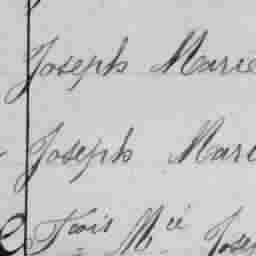 Joseph Marie
Joseph Mari
Frois Mie Jose